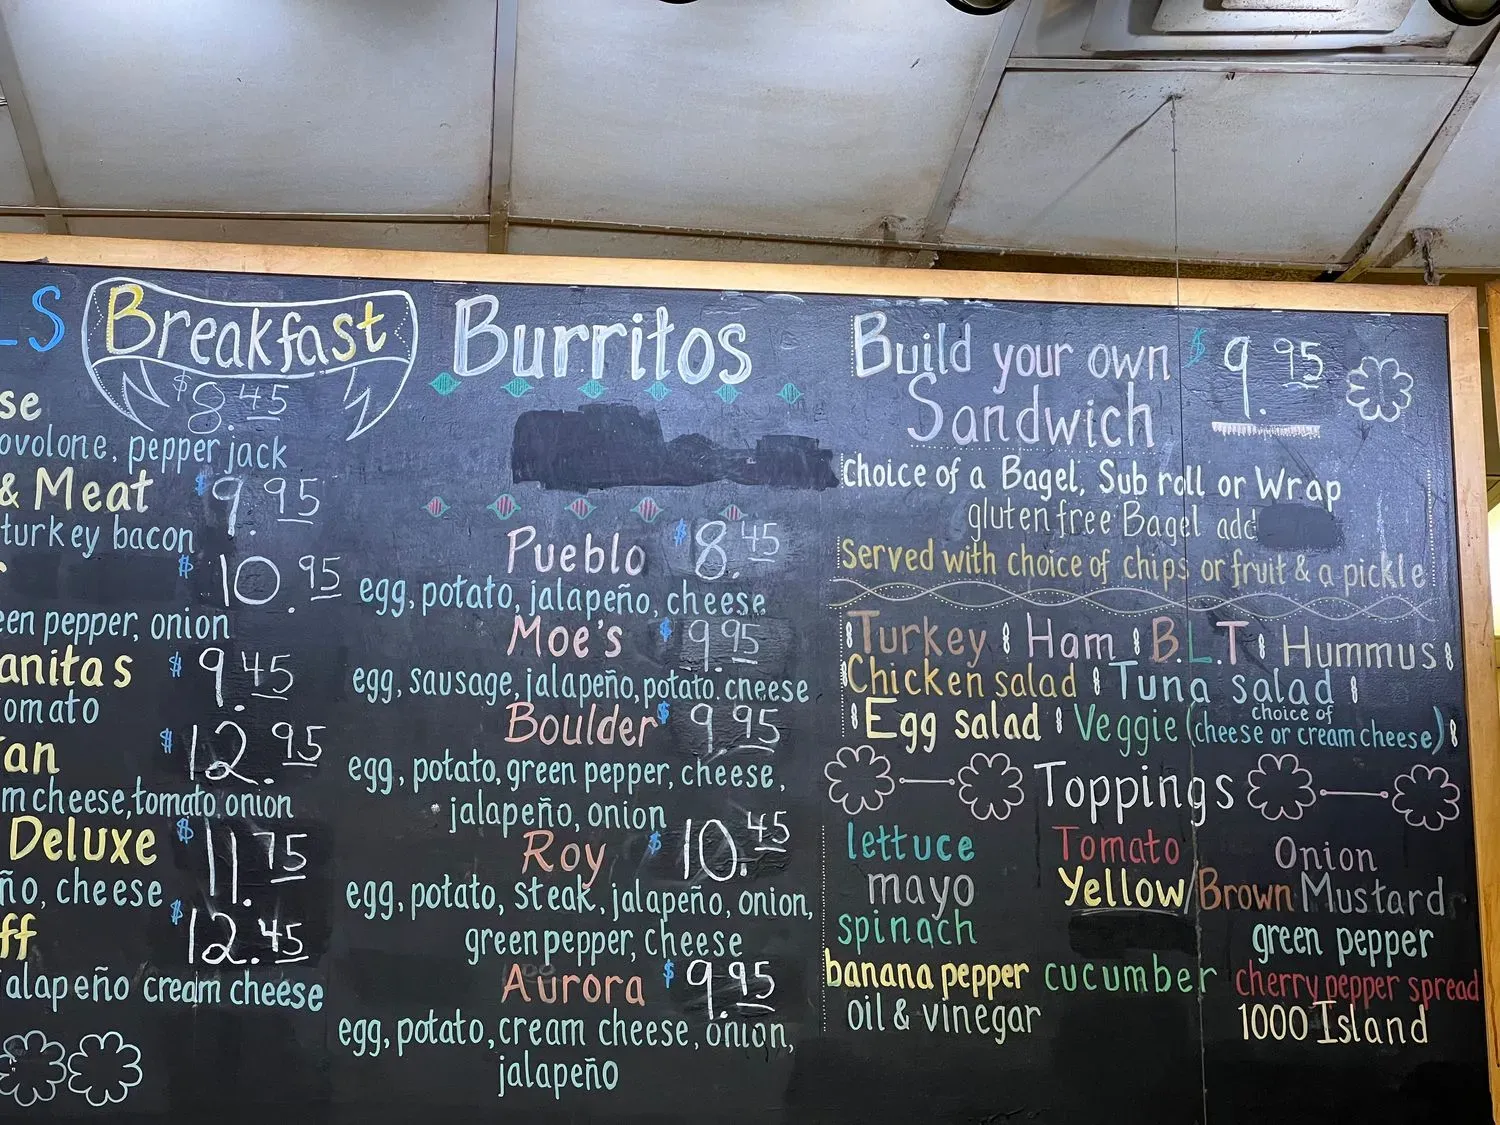 LS
Breakfast
$8.45
se
ovolone, pepper jack
& Meat $9.95
turkey bacon
$10.95
een pepper, onion
anitas $9.45
omato
an $12.95
m cheese, tomato, onion
Deluxe $11.75
ño, cheese
ff $12.45
alapeño cream cheese
Burritos
Pueblo $8.45
egg, potato, jalapeño, cheese
Moe's $9.95
egg, sausage, jalapeño, potato. cheese
Boulder $9.95
egg, potato, green pepper, cheese,
jalapeño, onion
Roy $10.45
egg, potato, steak, jalapeño, onion,
green pepper, cheese
Aurora $9.95
egg, potato, cream cheese, onion,
jalapeño
Build your own $9.95
Sandwich
Choice of a Bagel, Sub roll or Wrap
gluten free Bagel add
Served with choice of chips or fruit & a pickle
Turkey Ham B.L.T Hummus
Chicken salad Tuna salad
Egg salad Veggie (choice of cheese or cream cheese)
Toppings
lettuce Tomato Onion
mayo Yellow/Brown Mustard
spinach green pepper
banana pepper cucumber cherry pepper spread
oil & vinegar 1000 Island